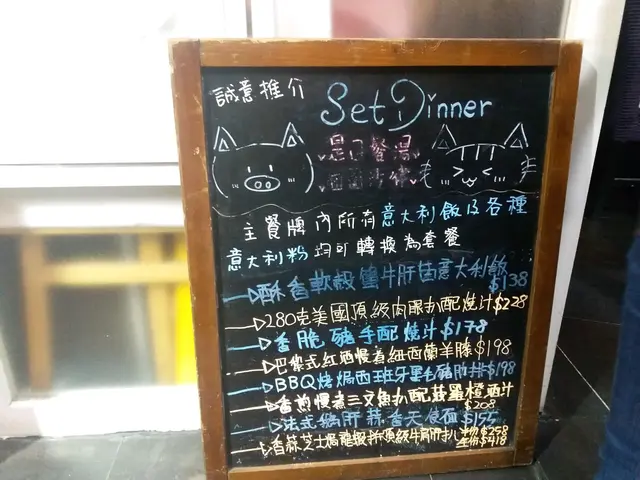 誠意推介
Set Dinner
是日餐湯
田園沙律
主餐牌內所有意大利飯及各種
意大利粉均可轉換為套餐
酥香軟殼蟹牛肝菌意大利飯 $138
280克美國頂級肉眼扒配燒汁 $228
香脆豬手配燒汁 $178
巴黎式紅酒慢煮紐西蘭羊膝 $198
BBQ燒焗西班牙黑毛豬肋排 $198
香煎慢煮三文魚扒配菠蘿橙酒汁
$208
法式鵝肝蒜香天使面 $155
香蒜芝士焗龍蝦拼頂級牛肩肝扒 半份 $258
$418